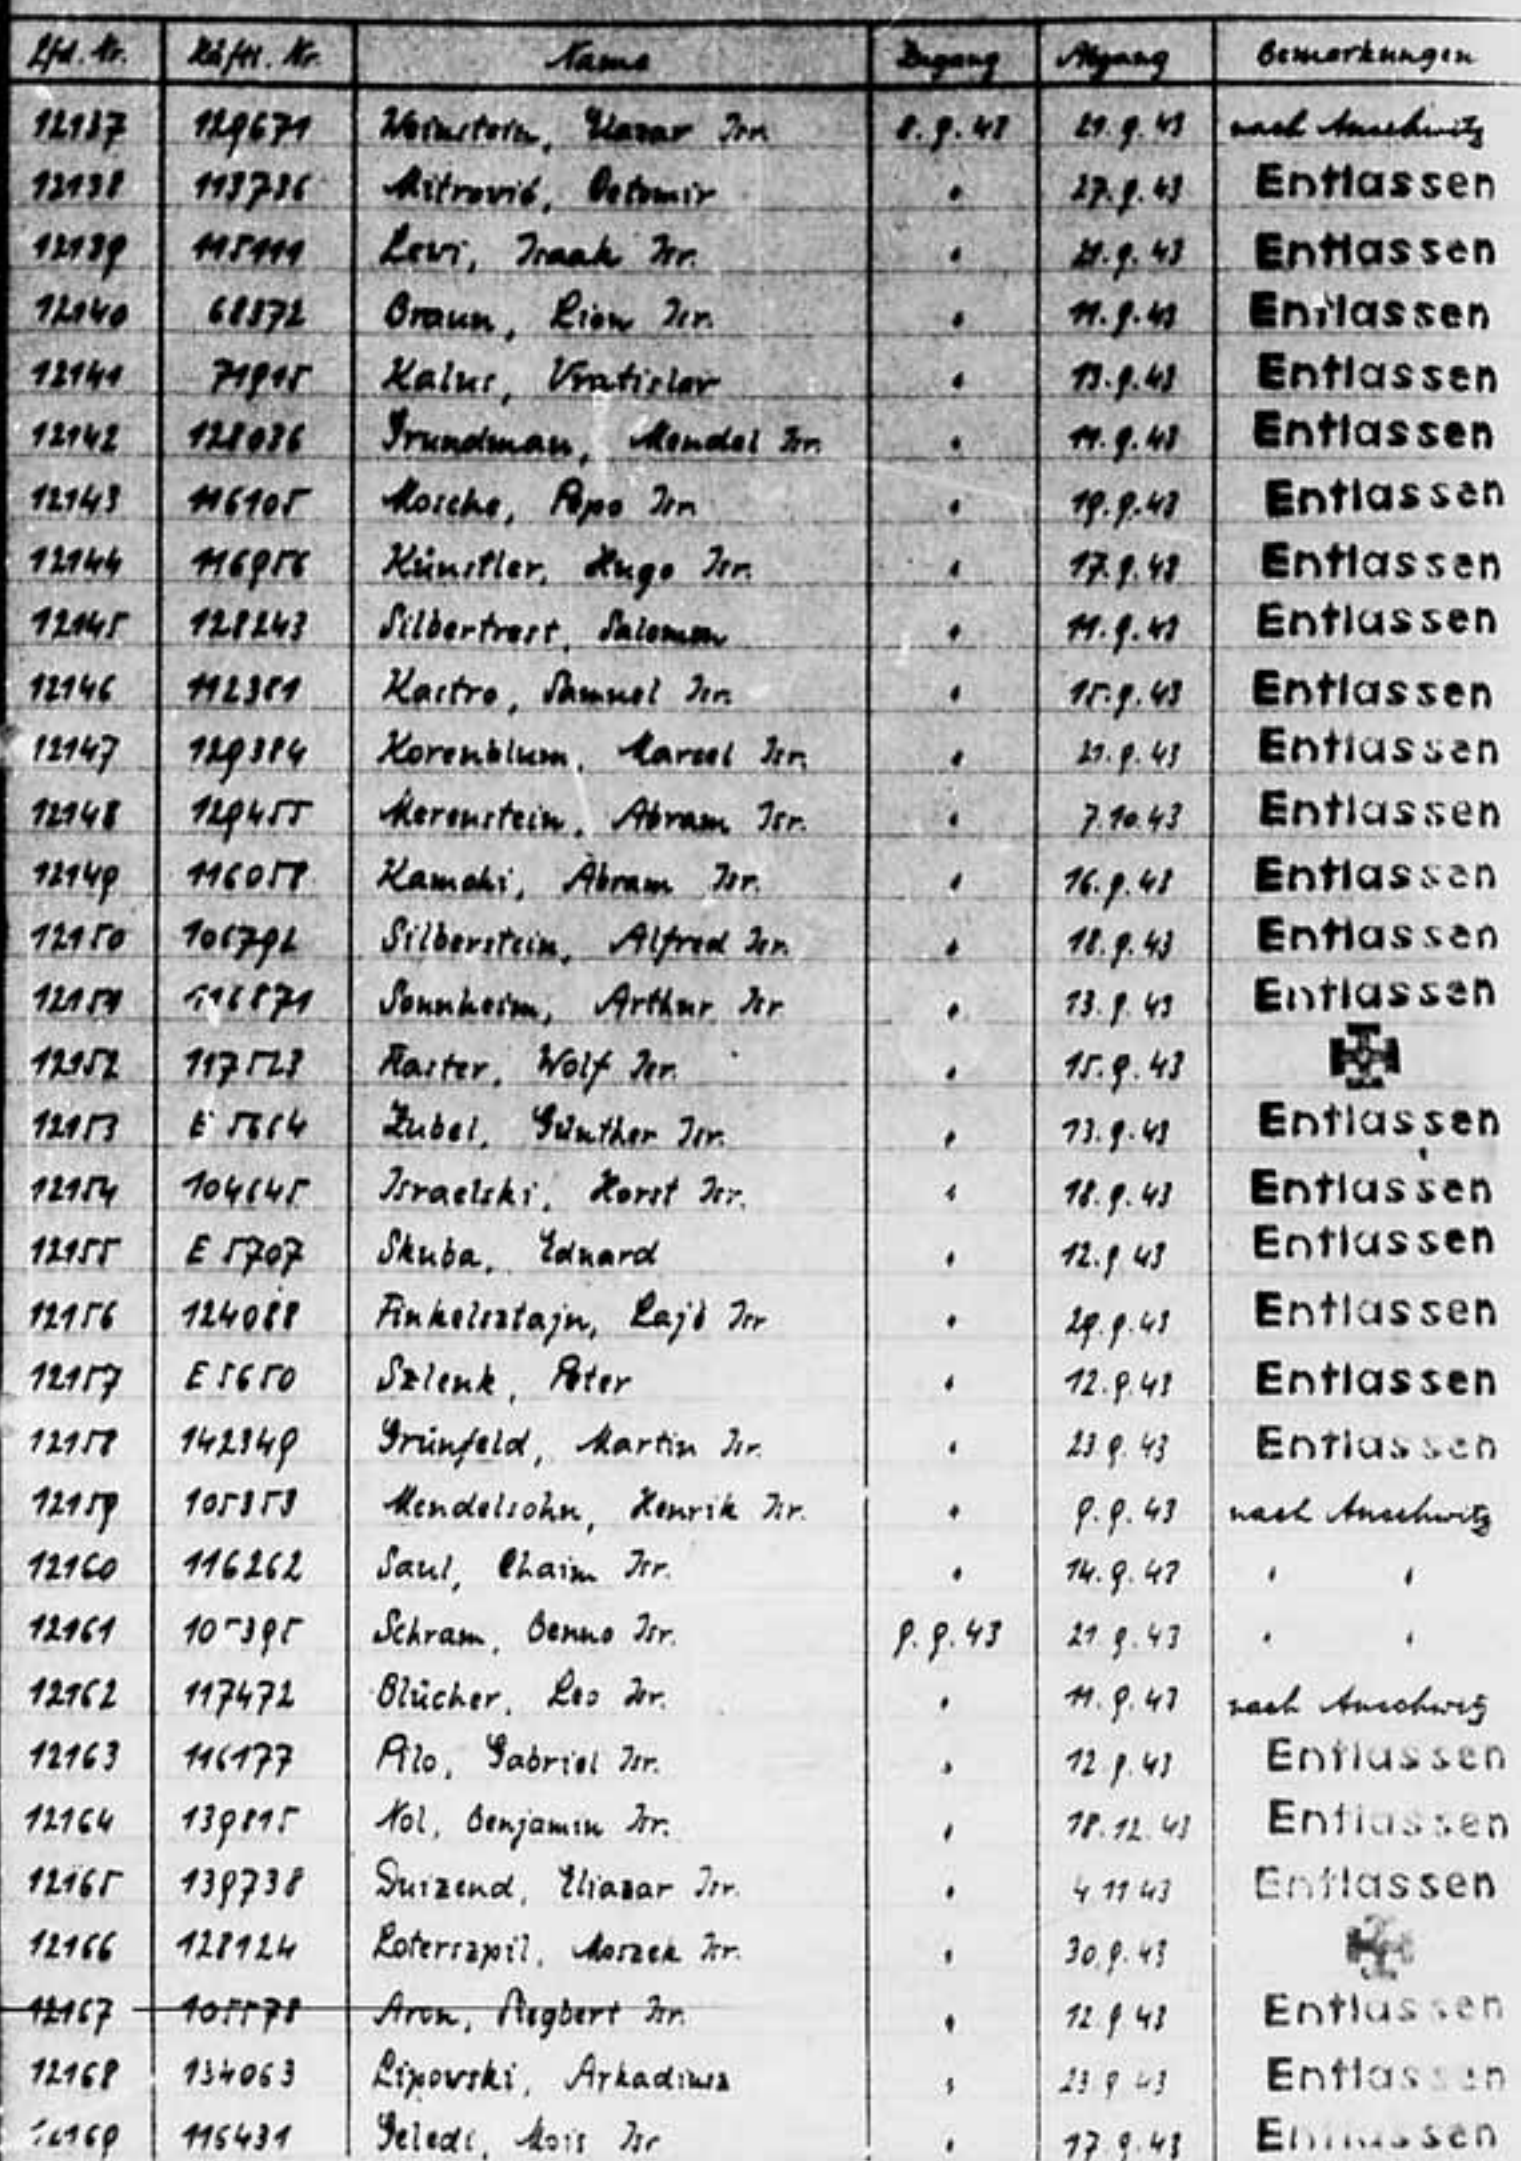 Lfd. Nr. Häftl. Nr. Name Zugang Abgang Bemerkungen
12137 129671 Weinstein, Elazar Isr. 8.9.43 21.9.43 nach Auschwitz
12138 113736 Mitrović, Cetomir " 27.9.43 Entlassen
12139 115111 Levi, Isaak Isr. " 21.9.43 Entlassen
12140 68372 Braun, Lion Isr. " 11.9.43 Entlassen
12141 71915 Kalus, Vratislav " 13.9.43 Entlassen
12142 128036 Grundman, Mendel Isr. " 11.9.43 Entlassen
12143 116105 Mosche, Pepo Isr. " 19.9.43 Entlassen
12144 116956 Künstler, Hugo Isr. " 17.9.43 Entlassen
12145 128243 Silbertrest, Salomon " 11.9.43 Entlassen
12146 112381 Kastro, Samuel Isr. " 15.9.43 Entlassen
12147 129384 Korenblum, Marcel Isr. " 21.9.43 Entlassen
12148 129455 Merenstein, Abram Isr. " 7.10.43 Entlassen
12149 116058 Kamchi, Abram Isr. " 16.9.43 Entlassen
12150 106792 Silberstein, Alfred Isr. " 18.9.43 Entlassen
12151 116871 Sonnheim, Arthur Isr. " 13.9.43 Entlassen
12152 117523 Faster, Wolf Isr. " 15.9.43
12153 E 5664 Zubel, Günther Isr. " 13.9.43 Entlassen
12154 104645 Israelski, Horst Isr. " 18.9.43 Entlassen
12155 E 5707 Skuba, Eduard " 12.9.43 Entlassen
12156 124088 Finkelsztajn, Lajb Isr " 29.9.43 Entlassen
12157 E 5650 Szlenk, Peter " 12.9.43 Entlassen
12158 142349 Grünfeld, Martin Isr. " 23.9.43 Entlassen
12159 105353 Mendelsohn, Henrik Isr. " 9.9.43 nach Auschwitz
12160 116262 Saul, Chaim Isr. " 14.9.43 " "
12161 Schram, Benno Isr. 9.9.43 21.9.43 " "
12162 117472 Blücher, Leo Isr. " 11.9.43 nach Auschwitz
12163 116177 Pilo, Gabriel Isr. " 12.9.43 Entlassen
12164 139815 Nol, Benjamin Isr. " 18.12.43 Entlassen
12165 139738 Duizend, Eliazar Isr. " 4.11.43 Entlassen
12166 128124 Loterszpil, Moszek Isr. " 30.9.43
12167 105578 Aron, Siegbert Isr. " 12.9.43 Entlassen
12168 134063 Lipowski, Arkadiusz " 23.9.43 Entlassen
12169 115431 Geledi, Mois Isr " 17.9.43 Entlassen